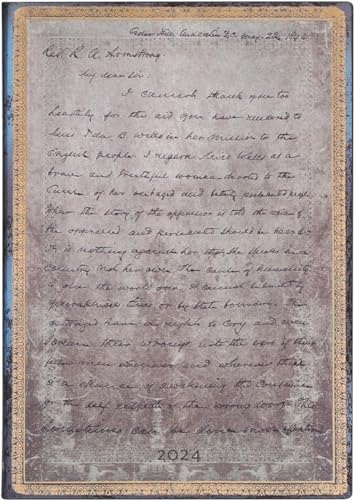 Cedar Hill, Anacostia D.C. May. 22, 1894
Rev. R. A. Armstrong.
My dear Sir.
I cannot thank you too
heartily for the aid you have rendered to
Miss Ida B. Wells in her mission to the
English people. I regard Miss Wells as a
brave and truthful woman devoted to the
cause of her outraged and bitterly persecuted people.
When the story of the oppressor is told the voice of
the oppressed and persecuted should be heard.
It is nothing against her that she speaks in a
country not her own. The cause of humanity
is one the world over. It cannot be limited by
geographical lines or by state boundary. The
outraged have a right to cry and even
scream their wrongs into the ears of their
fellow men wherever and whenever there
is a chance of awakening the conscience
or the self respect of the wrong doers. This
sometimes can be done
2024